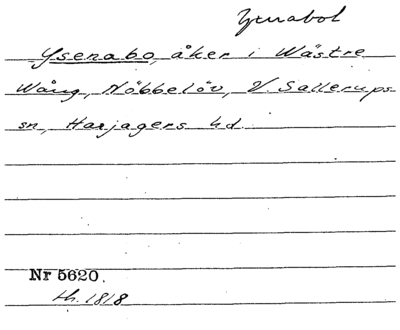 Ysenabol
Ysenabo, åker i Wästre
Wång, Nöbbelöv, V. Sallerups
sn, Harjagers hd.
Nr 5620.
th. 1818